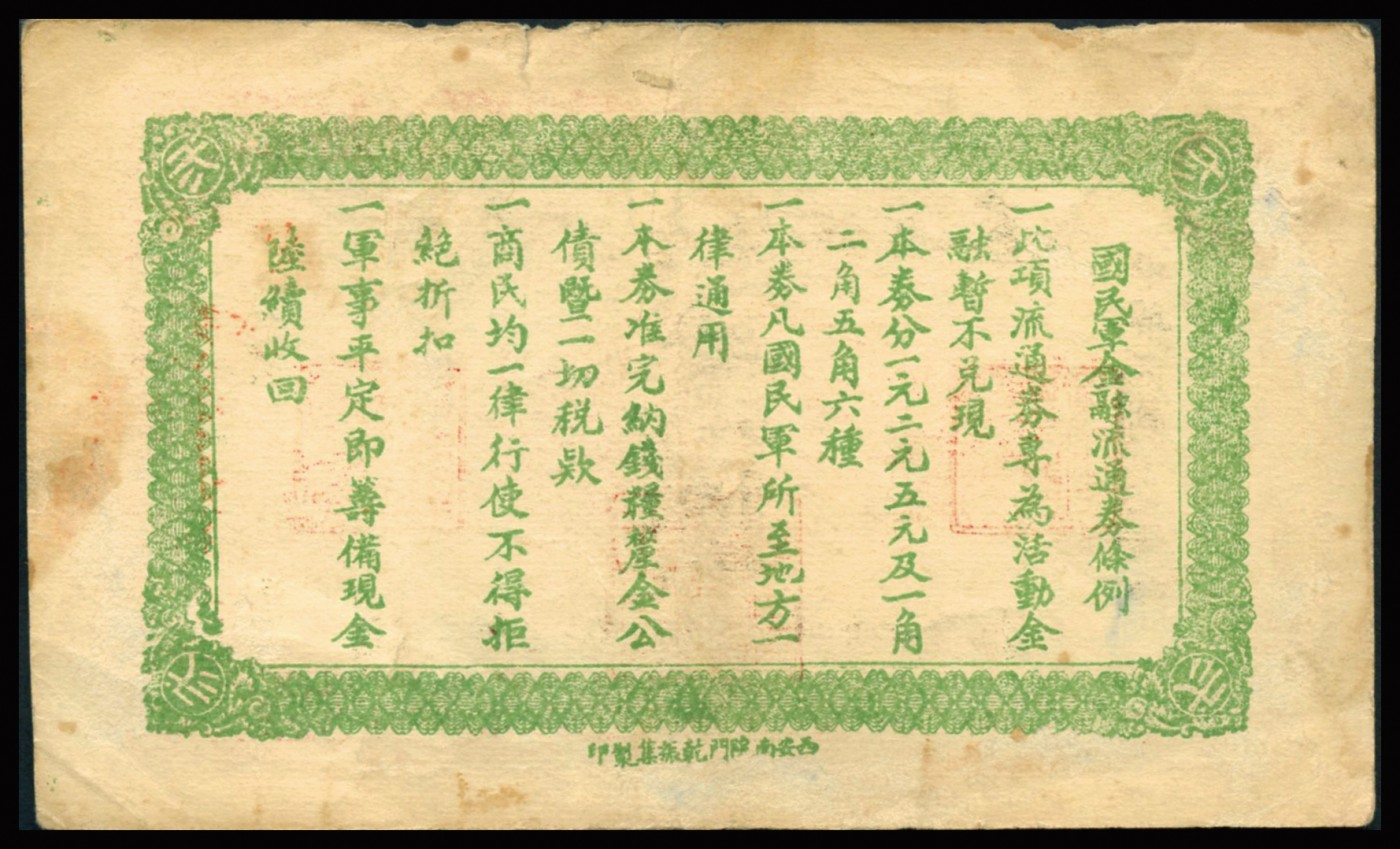 國民軍金融流通券條例
一此項流通券專為活動金
融暫不兑現
一本券分一元二元五元及一角
二角五角六種
一本券凡國民軍所至地方一
律通用
一本券准完納錢糧釐金公
債暨一切税欵
一商民均一律行使不得拒
絶折扣
一軍事平定即籌備現金
陸續收回
西安南院門乾振集製印